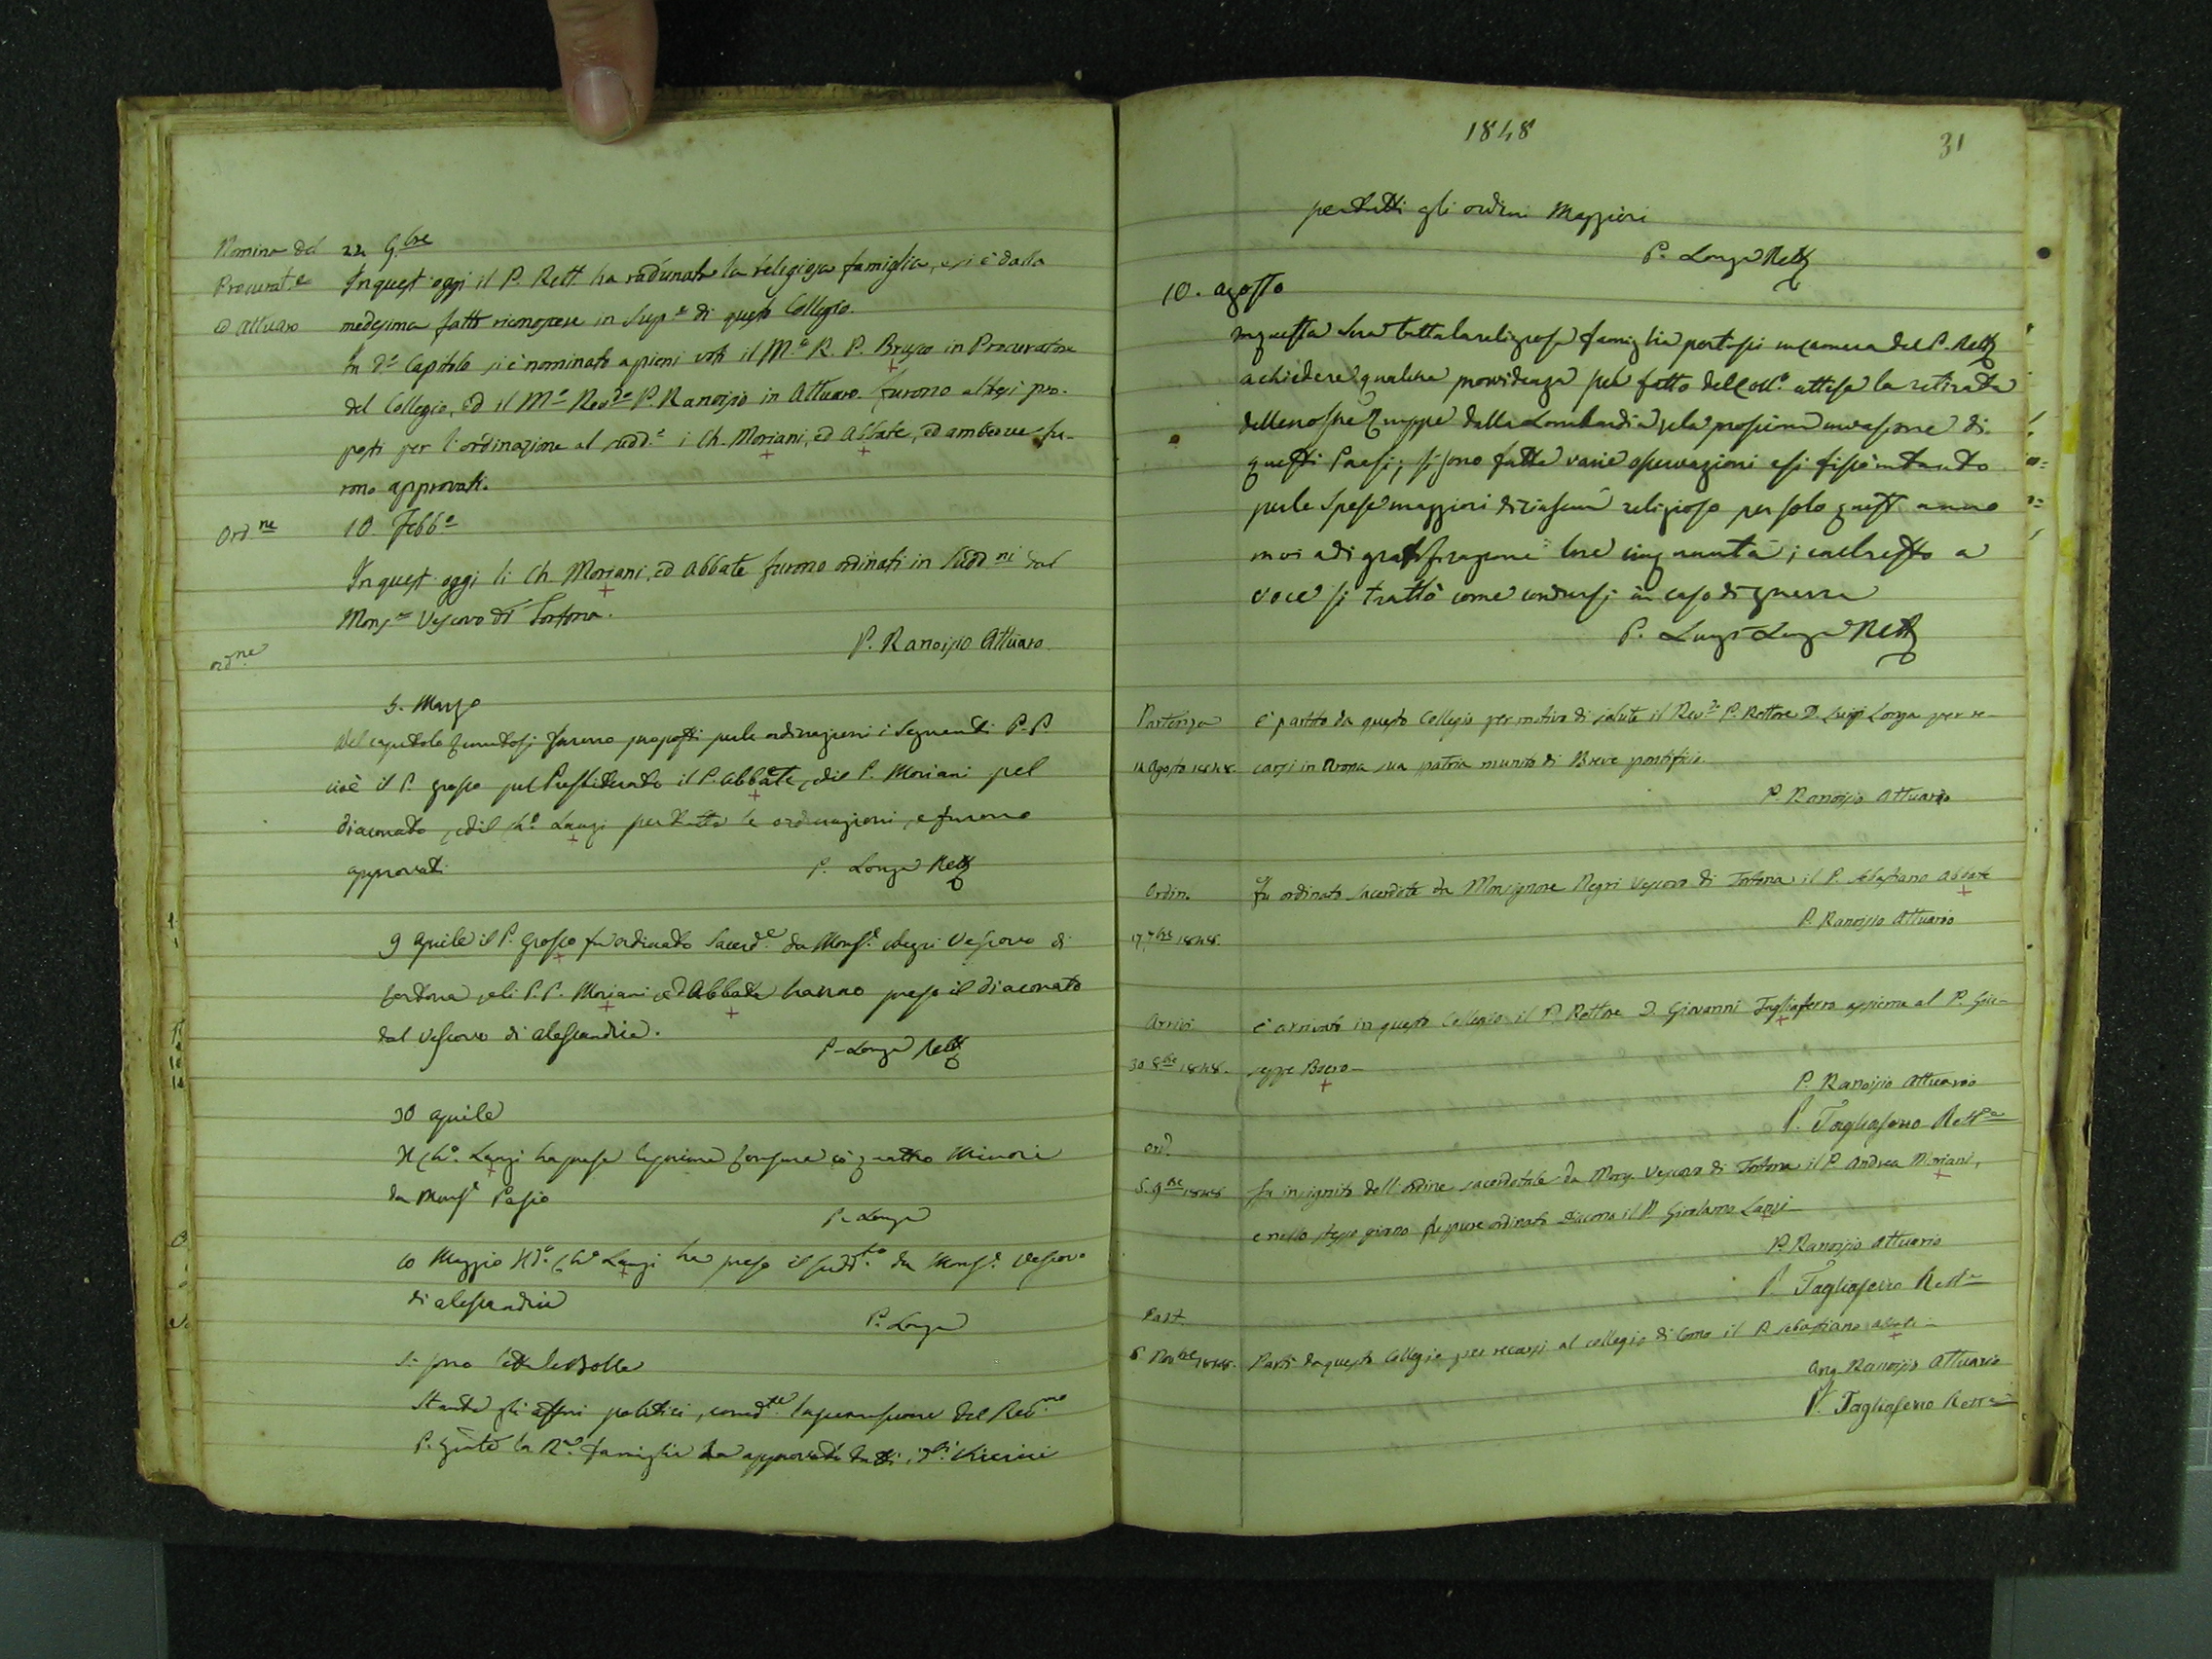 Nomina del
Procurat.e
ed Attuaro
22 9.bre
In quest'oggi il P. Rett. ha radunata la religiosa famiglia, e si è dalla
medesima fatto riconoscere in Sup.e di questo Collegio.
In d.o Capitolo si è nominato a pieni voti il M.o R. P. Brusco in Procuratore
del Collegio, ed il M.o Rev.do P. Ranoisio in Attuaro. Furono altresì pro-
posti per l'ordinazione al sudd.o i Ch. Moriani, ed Abbate, ed ambedue fu-
rono approvati.
Ord.ne
10. Febb.o
In quest'oggi li Ch. Moriani, ed Abbate furono ordinati in Sudd.ni dal
Mons.re Vescovo di Tortona.
P. Ranoisio Attuaro
ord.ne
5. Marzo
Nel capitolo furono proposti per le ordinazioni i seguenti P.P.
cioè il P. Grosso pel Presbiterato il P. Abbate, ed il P. Moriani pel
diaconato, ed il Ch.o Lanzi per tutte le ordinazioni, e furono
approvati
P. Longa Rett
9 Aprile il P. Grosso fu ordinato Sacerd.e da Mons.e Negri Vescovo di
Tortona, e li P.P. Moriani, ed Abbate hanno preso il diaconato
dal Vescovo di Alessandria.
P. Longa Rett
30 Aprile
Il Ch.o Lanzi ha preso la prima Tonsura coi quattro Minori
da Mons.e Pasio
P. Longa
10 Maggio Il d.o Ch.o Lanzi ha preso il sudd.to da Mons.e Vescovo
di Alessandria
P. Longa
Si sono lette le Bolle
Stante gli affari politici, con la permissione del Rev.mo
P. la R.a famiglia ha approvato tutti i Chierici
1848
31
per tutti gli ordini Maggiori
P. Longa Rett
10. agosto
In questa sera tutta la religiosa famiglia portossi in camera del P. Rett
a chiedere qualche provvidenza pel fatto del Coll.o attesa la retirata
delle nostre truppe dalla Lombardia, e la prossima invasione di
questi Paesi; si sono fatte varie osservazioni e si fissò intanto
per le spese maggiori di ciascun religioso per solo quest'anno
in via di gratificazione lire cinquanta; ed a
voce si trattò come condursi in caso di guerra
P. Luigi Longa Rett
Partenza
14 Agosto 1848.
è partito da questo Collegio per motivo di salute il Rev.do P. Rettore D. Luigi Longa per re-
carsi in Arona sua patria munito di Breve pontificio.
P. Ranoisio Attuario
Ordin.
17. 7bre 1848.
Fu ordinato sacerdote da Monsignore Negri Vescovo di Tortona il P. Sebastiano Abbate
P. Ranoisio Attuario
Arrivi
30 8bre 1848.
è arrivato in questo Collegio il P. Rettore D. Giovanni Tagliaferro assieme al P. Giu-
seppe Boero-
P. Ranoisio Attuario
P. Tagliaferro Rett.re
ord.
5. 9bre 1848
fu insignito dell'ordine sacerdotale da Mons. Vescovo di Tortona il P. Andrea Moriani,
e nello stesso giorno fu pure ordinato diacono il P. Girolamo Lanzi-
P. Ranoisio Attuario
P. Tagliaferro Rett.re
Part.
8 Novbre 1848.
Partì da questo Collegio per recarsi al collegio di Como il P. Sebastiano Abbate-
Ang. Ranoisio Attuario
P. Tagliaferro Rett.re